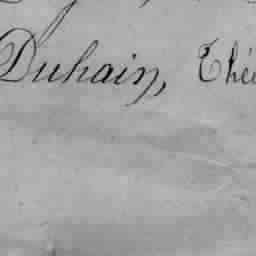 Duhain, Thé